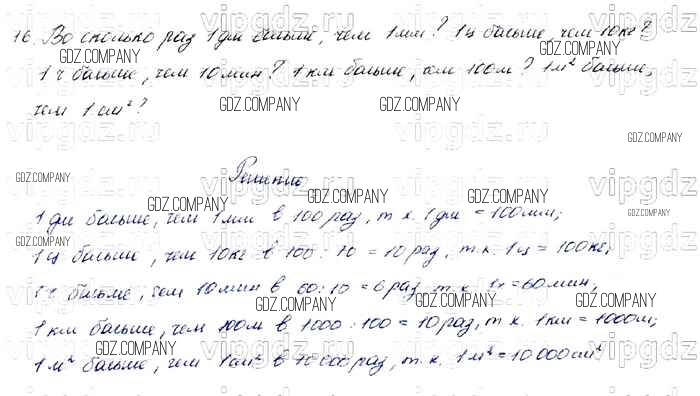 16. Во сколько раз 1 дм больше, чем 1 мм? 1 ц больше, чем 10 кг?
1 ч больше, чем 10 мин? 1 км больше, чем 100 м? 1 м² больше,
чем 1 см²?
Решение
1 дм больше, чем 1 мм в 100 раз, т.к. 1 дм = 100 мм;
1 ц больше, чем 10 кг в 100 : 10 = 10 раз, т.к. 1 ц = 100 кг;
1 ч больше, чем 10 мин в 60 : 10 = 6 раз, т.к. 1 ч = 60 мин;
1 км больше, чем 100 м в 1000 : 100 = 10 раз, т.к. 1 км = 1000 м;
1 м² больше, чем 1 см² в 10 000 раз, т.к. 1 м² = 10 000 см²
GDZ.COMPANY
vipgdz.ru